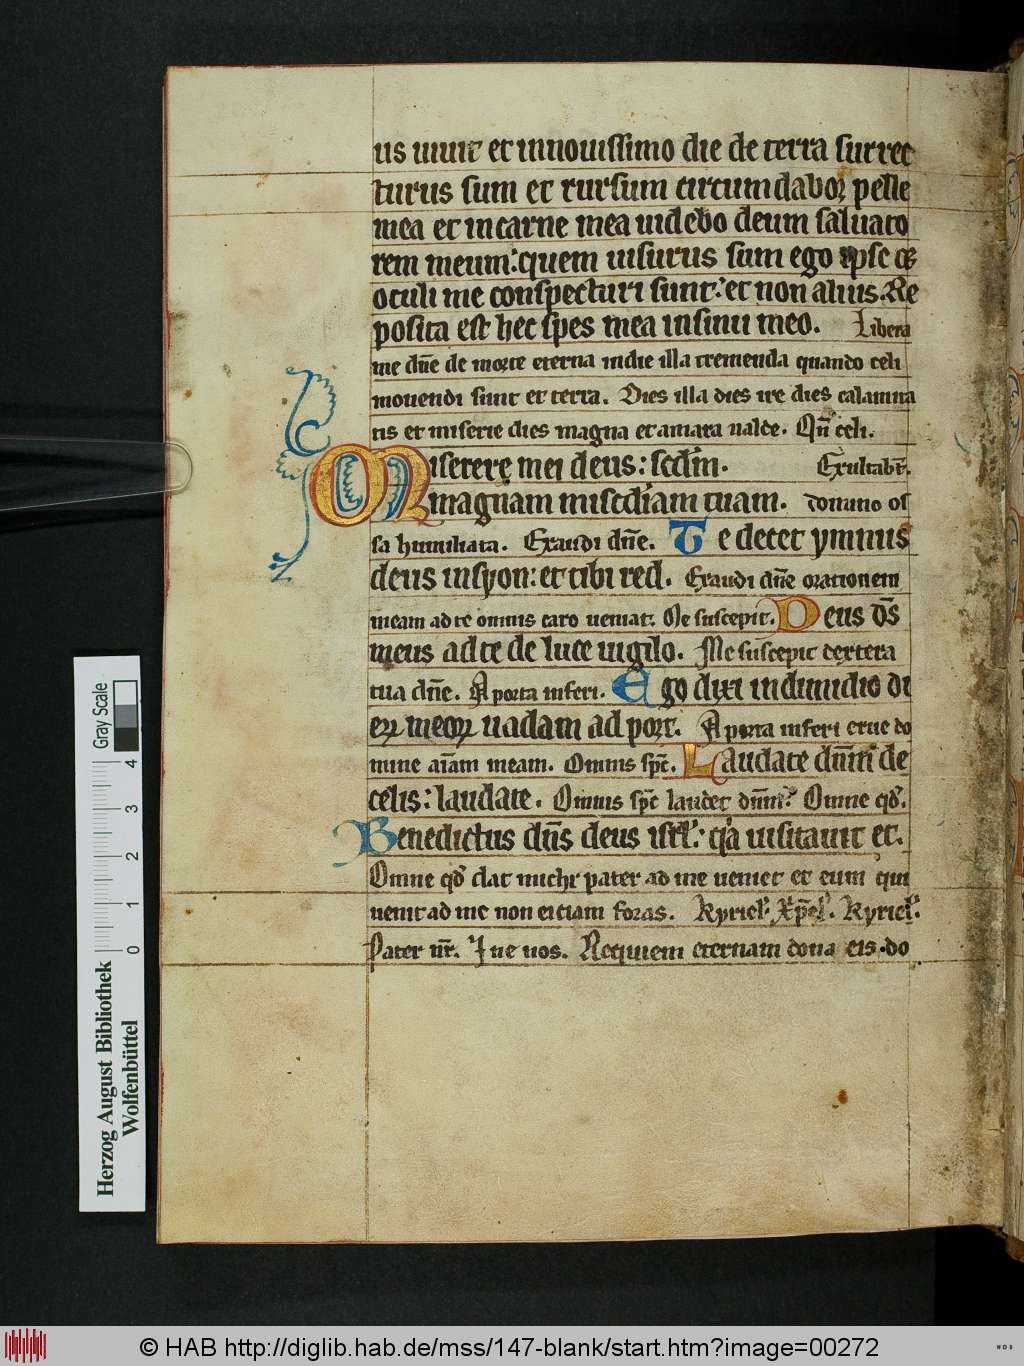 us uiuit et innouissimo die de terra surrec
turus sum et rursum circumdaboꝛ pelle
mea et in carne mea uidebo deum saluato
rem meum: quem uisurus sum ego ipse et
oculi me conspecturi sunt: et non alius. Re
posita est hec spes mea insinu meo. Libera
me dn̄e de morte eterna indie illa tremenda quando celi
mouendi sunt et terra. Dies illa dies ire dies calamita
tis et miserie dies magna et amara ualde. Qn̄ celi.
Miserere mei deus: scd̄m. Exultabt̄.
magnam misc̄diam tuam. domino os
sa humiliata. Exaudi dn̄e. Te decet ymnus
deus insyon: et tibi red. Exaudi dn̄e orationem
meam ad te omnis caro ueniat. Me suscepit. Deus ds̄
meus ad te de luce uigilo. Me suscepit dextera
tua dn̄e. A porta inferi. Ego dixi indimidio di
eꝝ meoꝝ uadam ad port. A porta inferi erue do
mine aīam meam. Omnis spc̄. Laudate dn̄m de
celis: laudate. Omnis spc̄ laudet dn̄m. Omne qd̄.
Benedictus dn̄s deus isrl̄: qͥa uisitauit et.
Omne qd̄ dat michi pater ad me ueniet et eum qui
uenit ad me non eiciam foras. Kyriel̄. Xp̄el̄. Kyriel̄.
Pater nr̄. Et ne nos. Requiem eternam dona eis do
Gray Scale
0 1 2 3 4
Herzog August Bibliothek
Wolfenbüttel
© HAB http://diglib.hab.de/mss/147-blank/start.htm?image=00272